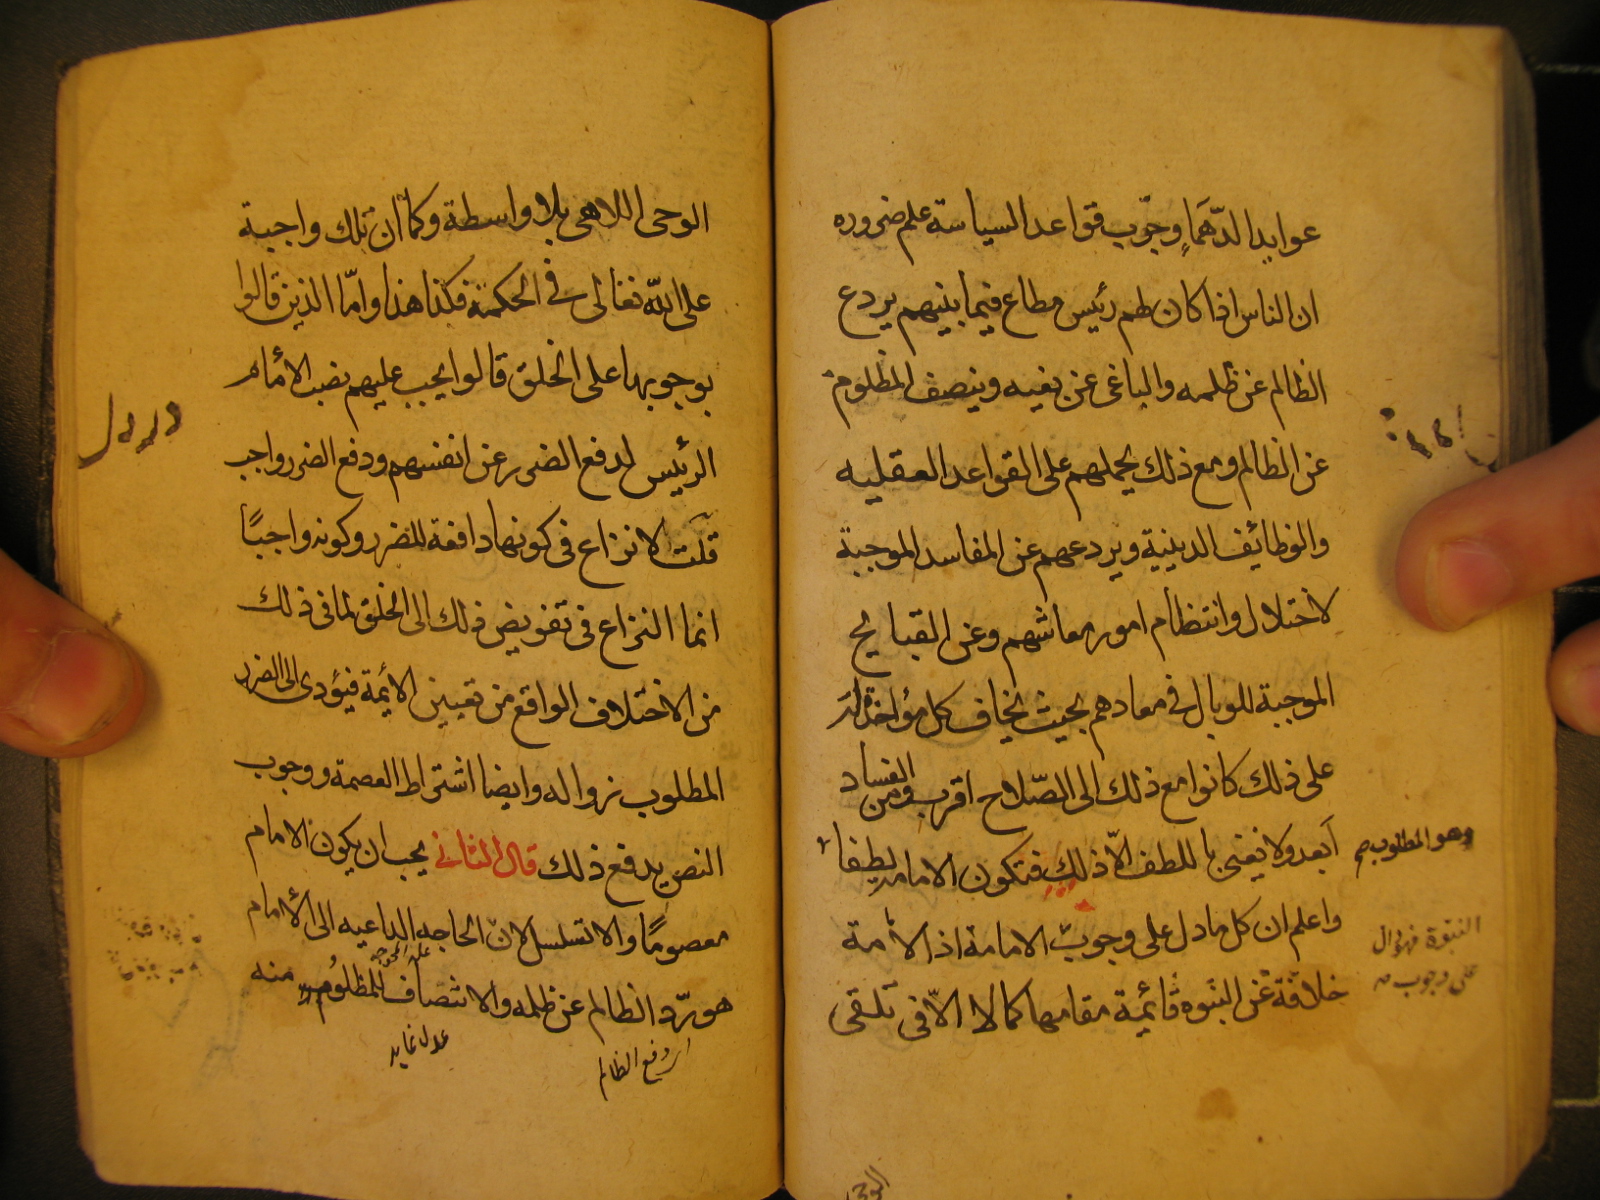 عوايد الدّهَماءِ وجرّب قواعد السياسة علم ضروره
ان الناس اذا كان لهم رئيس مطاع فيما بينهم يردع
الظالم عن ظلمه والباغى عن بغيه وينصف المظلوم
عن الظالم ومع ذلك يحملهم على القواعد العقليه
والوظائف الدينية ويردعهم عن المفاسد الموجبة
لاختلال وانتظام امور معاشهم وعن القبايح
الموجبة للوبال فى معادهم بحيث يخاف كل مؤاخذته
على ذلك كانوا مع ذلك الى الصّلاح اقرب ومن الفساد
اَبعد ولا نعنى باللطف الاّ ذلك فتكون الامامة لطفا
وهو المطلوب
واعلم ان كل ما دل على وجوب الامامة اذ الامامة
النبوة فهو دال
على وجوب
خلافة عن النبوه قائمية مقامها كمالا الاّ فى تلقى
الوحى
الوحى اللاهى بلا واسطة وكما أن تلك واجبة
على اللّه تعالى فى الحكمة فكذا هذا وامّا الذين قالوا
بوجوبها على الخلق قالوا يجب عليهم نصب الامام
الرئيس لدفع الضرر عن انفسهم ودفع الضرر واجب
قلت لا نزاع فى كونها دافعة للضرر وكونه واجبًا
انما النزاع فى تفويض ذلك الى الخلق لما فى ذلك
من الاختلاف الواقع من تعيين الايمة فيؤدى الى الضرر
المطلوب زواله وايضا اشتراط العصمة ووجوب
النص يدفع ذلك قال الثانى يجب ان يكون الامام
معصومًا والا تسلسل لانّ الحاجه الداعيه الى الامام
هو ردّ الظالم عن ظلمه والانتصاف للمظلوم منه
ار دفع الظالم